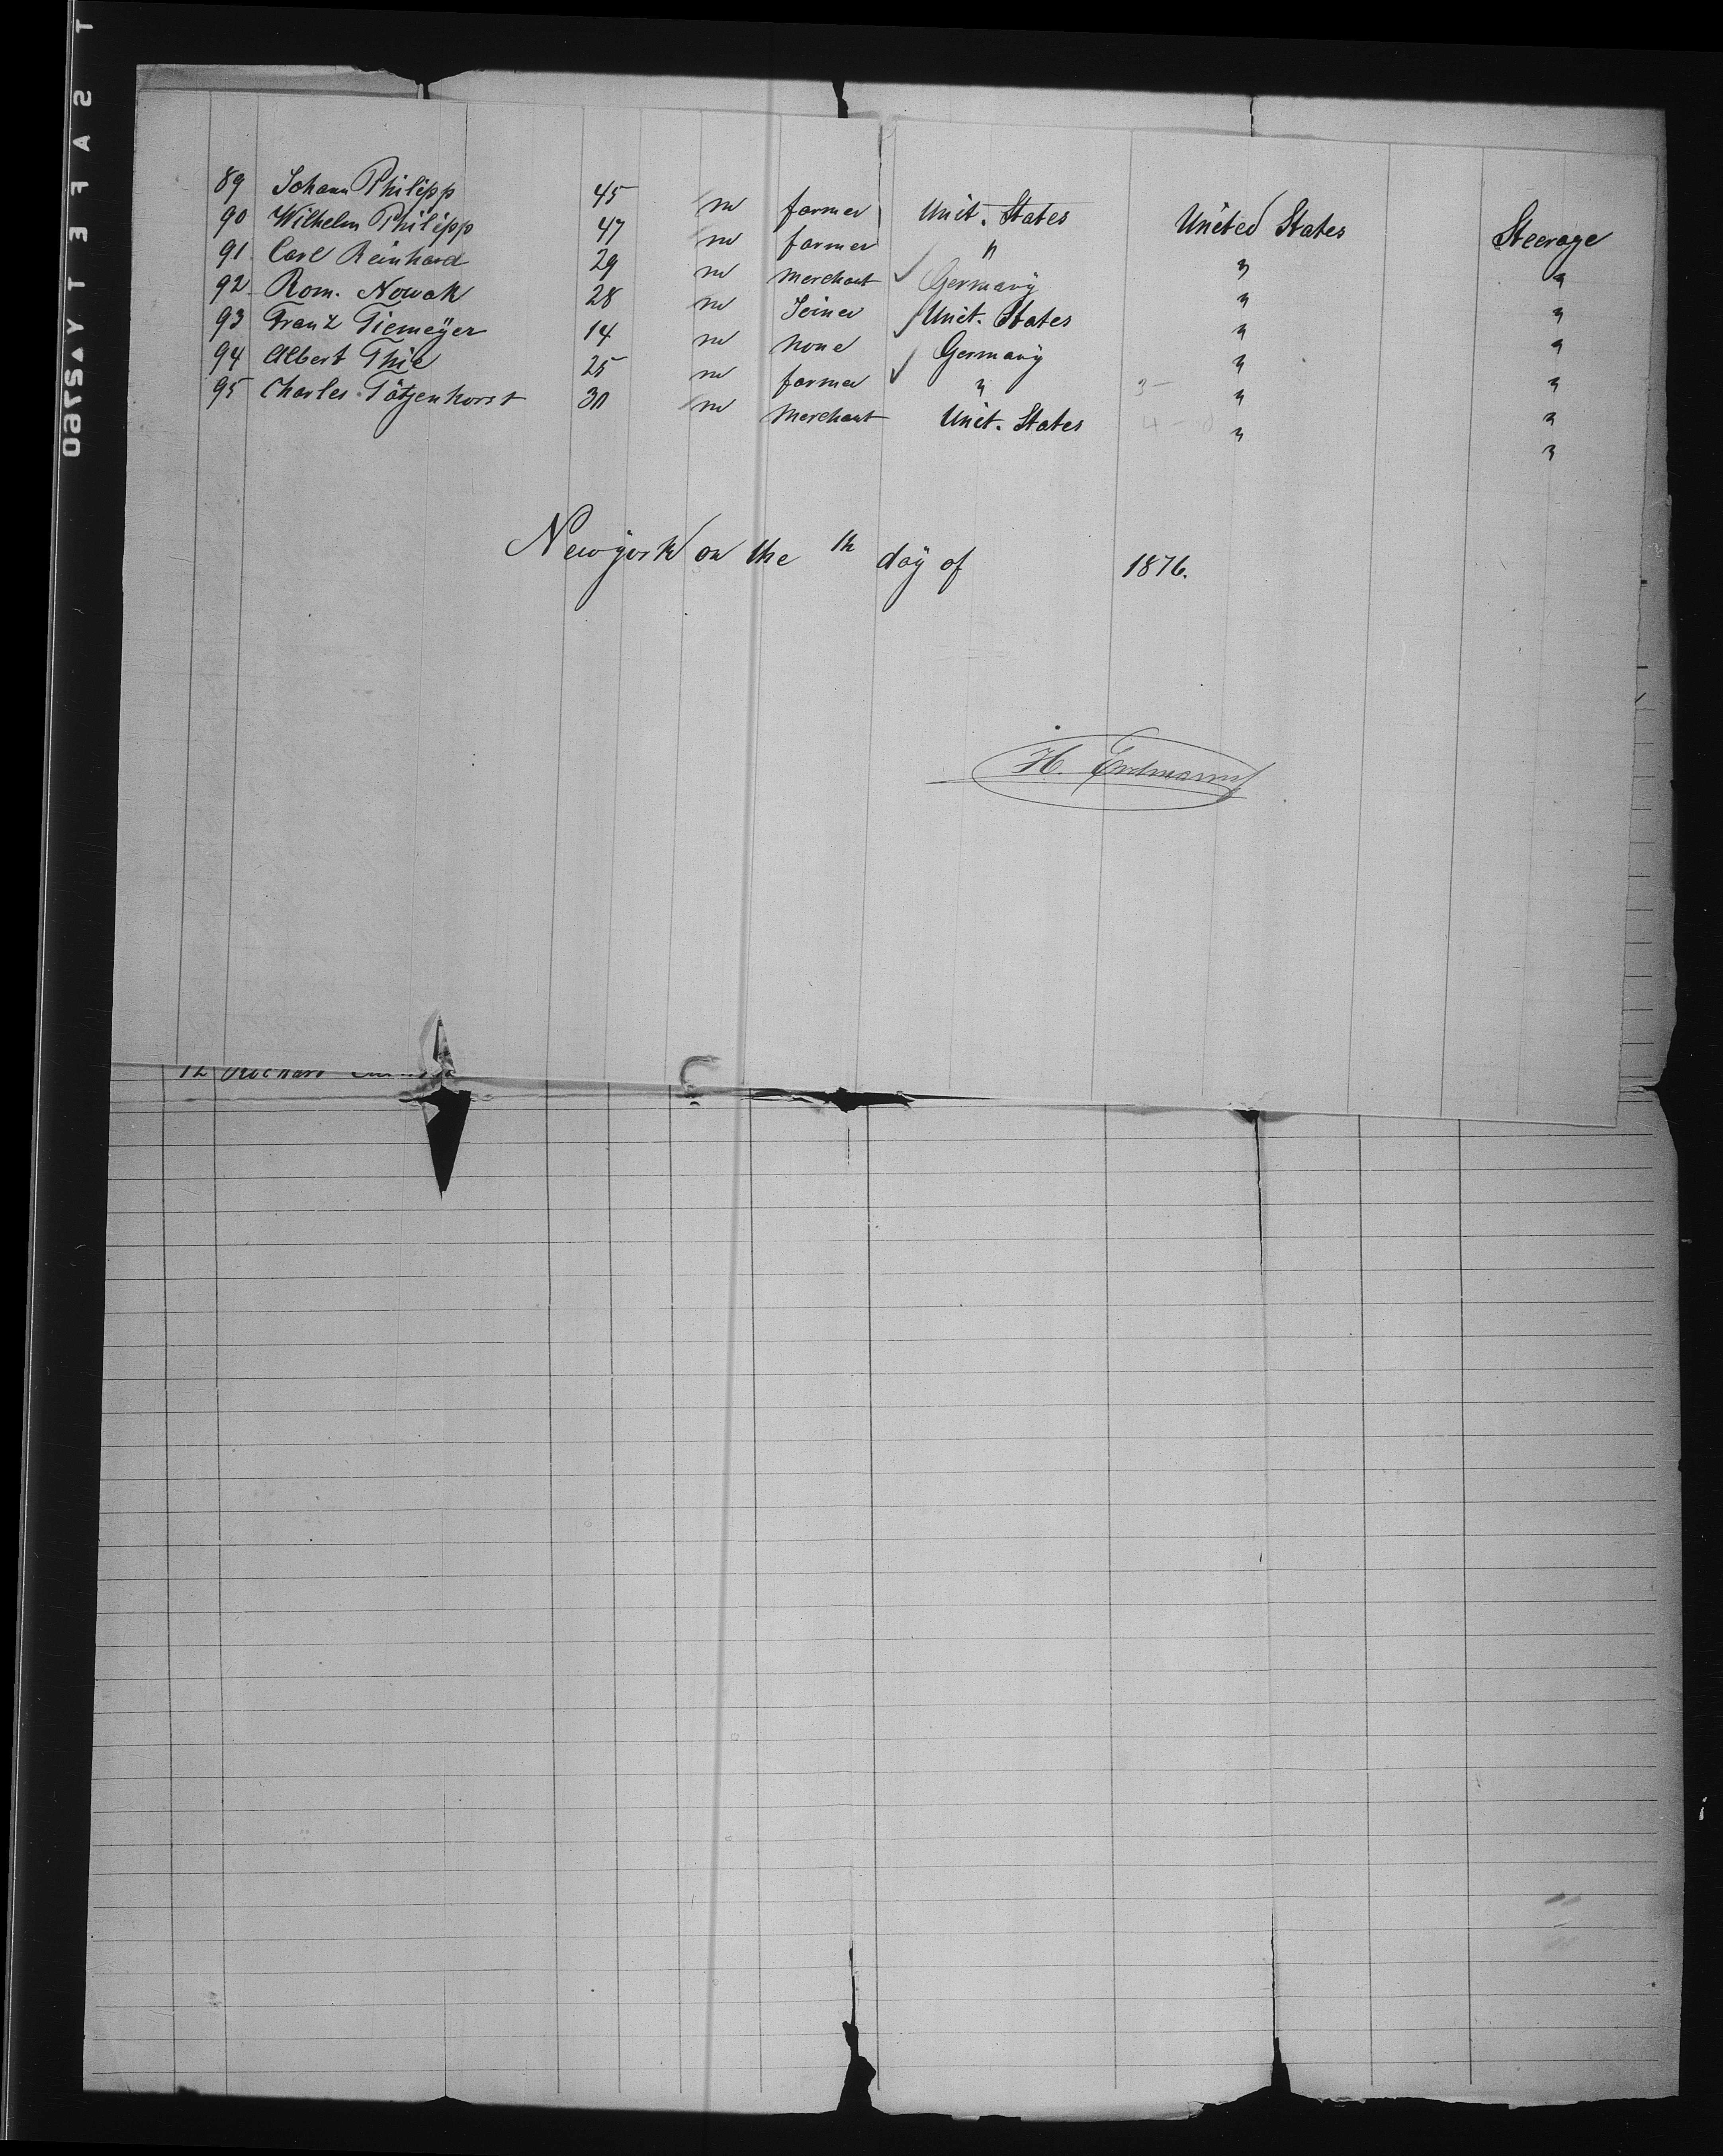 89 Johann Philipp 45 m farmer Unit. States United States Steerage
90 Wilhelm Philipp 47 m farmer " " "
91 Carl Reinhard 29 m Merchant Germany " "
92 Rom. Nowak 28 m Joiner Unit. States " "
93 Franz Tiemeÿer 14 m none Germany " "
94 Albert Thie 25 m farmer " " "
95 Charles Tötzenhorst 30 m Merchant Unit. States " "
Newÿork on the th daÿ of 1876.
H. Erdmann
12
SAFETY 0575